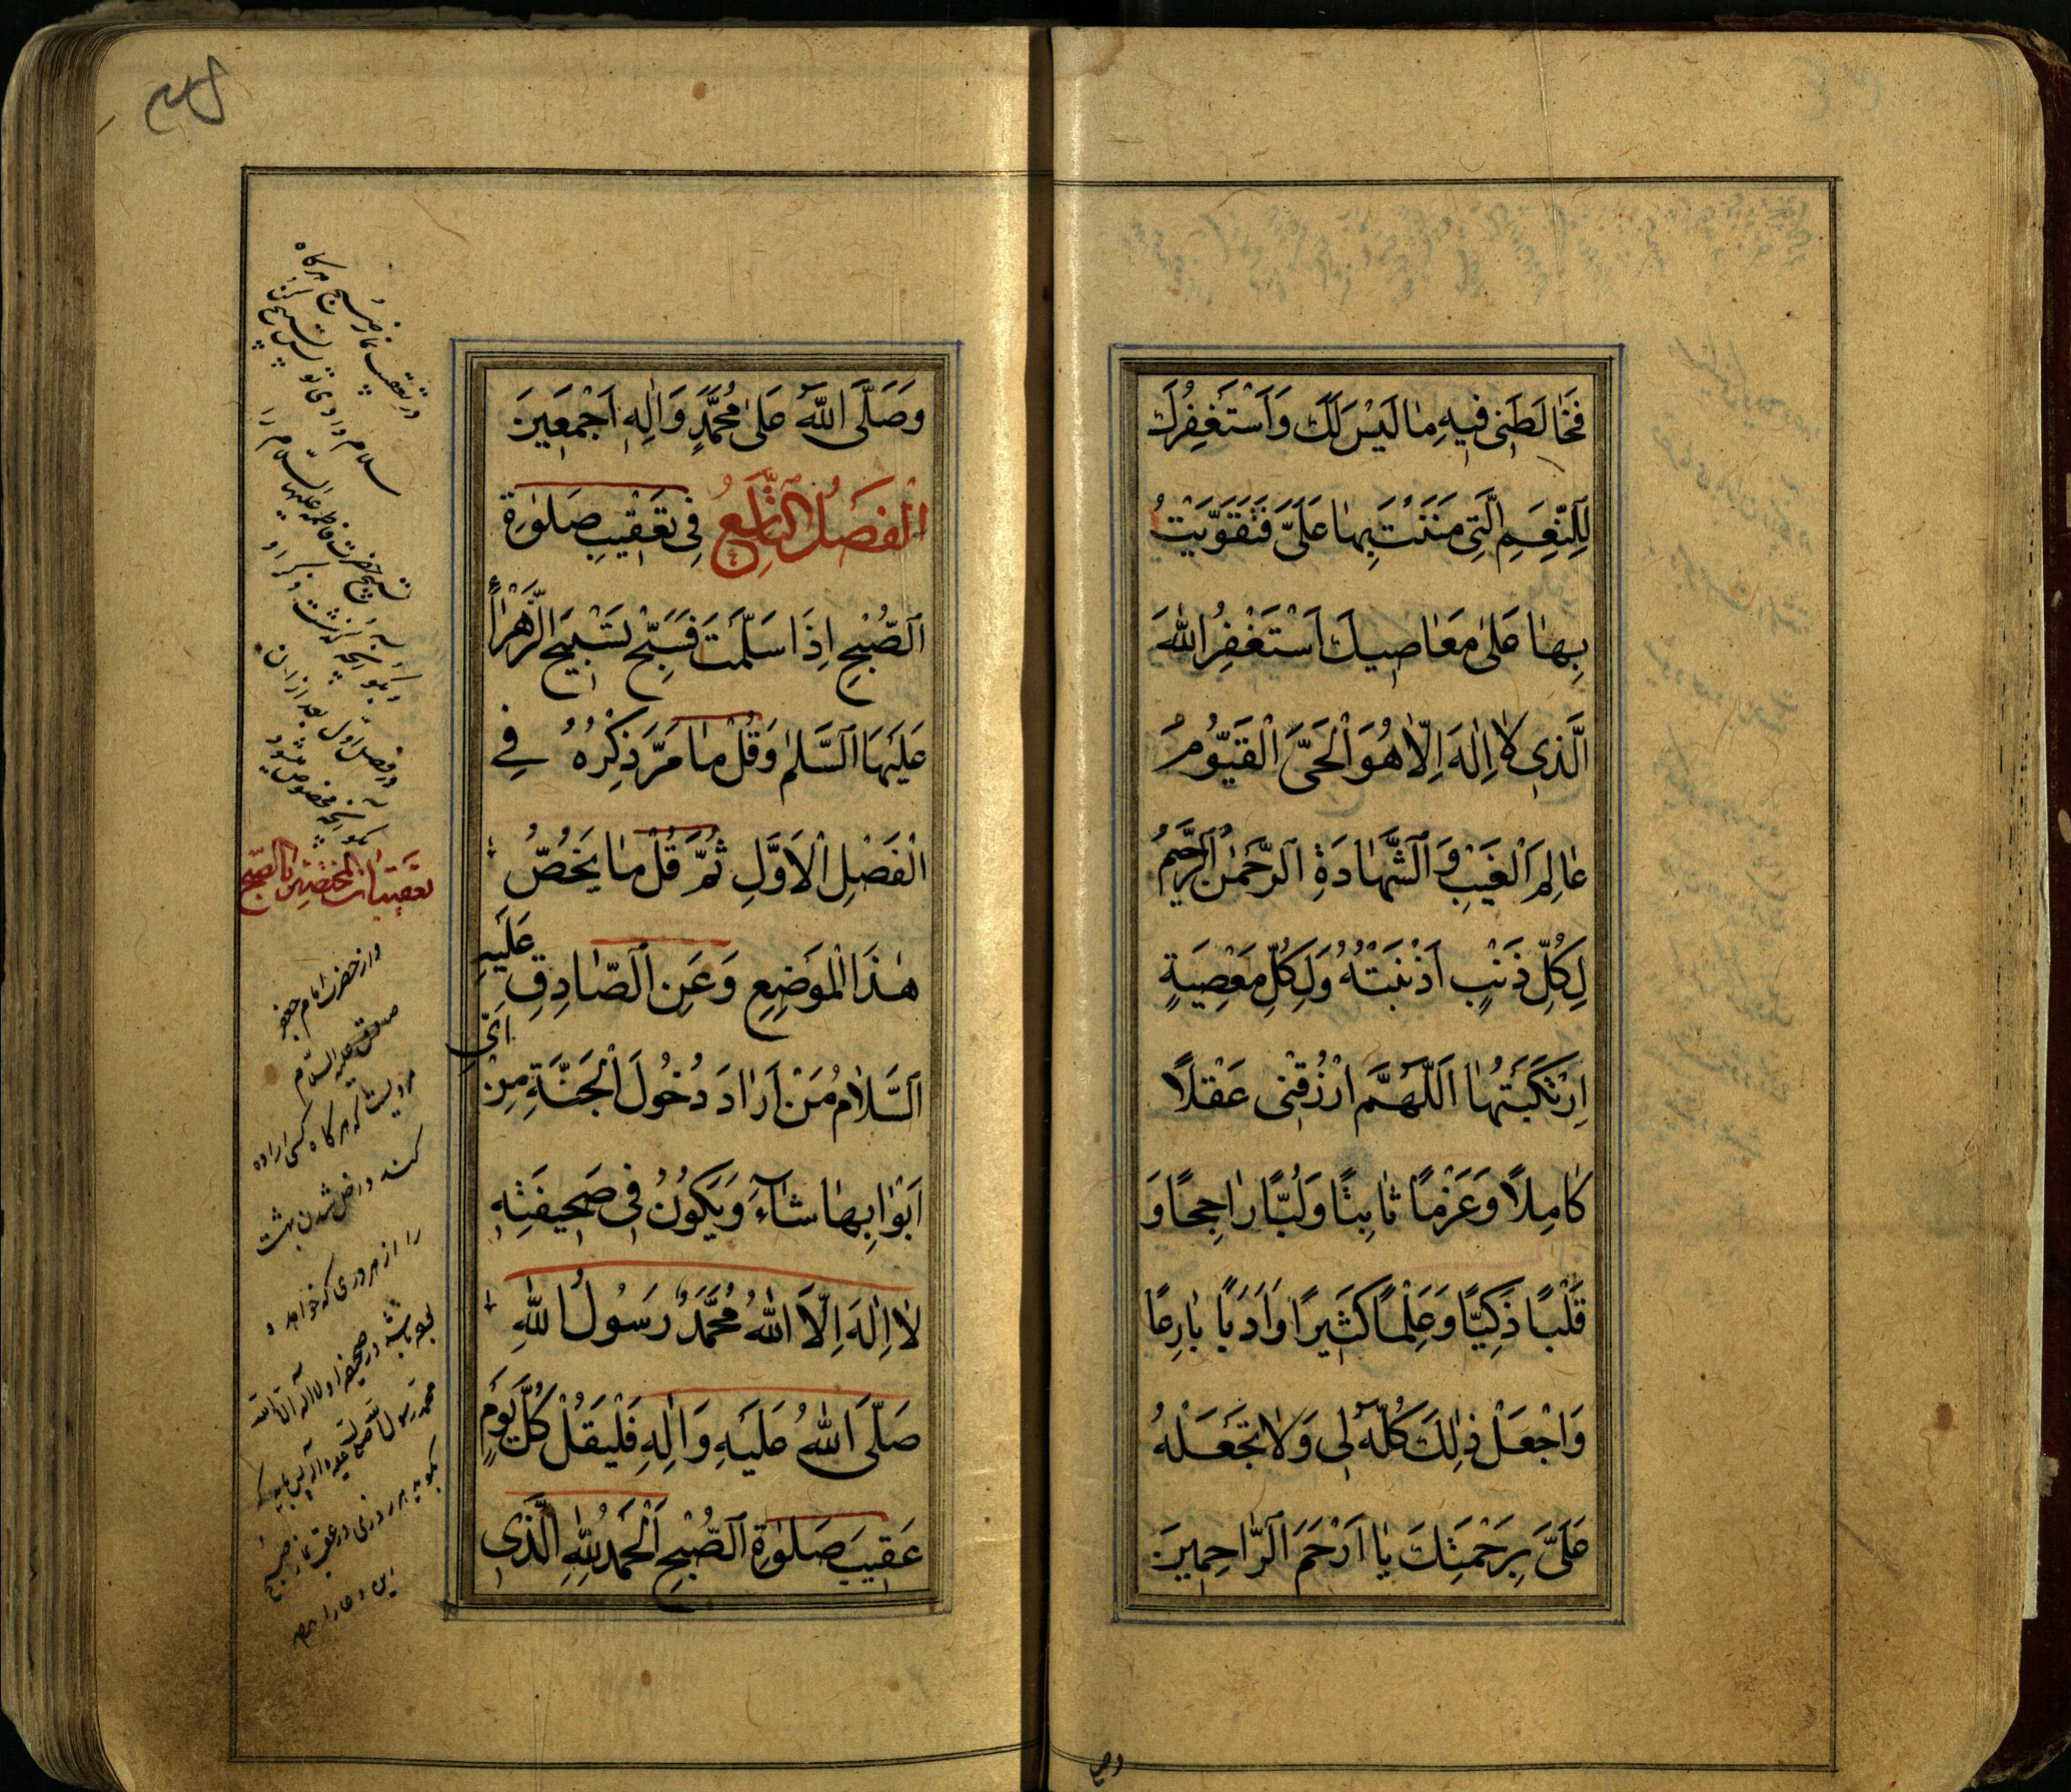 فَخٰالَطَنی فیهِ مٰا لَیْسَ لَکَ وَاَسْتَغْفِرُکَ
لِلنِّعَمِ الَّتی مَنَنْتَ بِهٰا عَلَیَّ فَتَقَوَّیْتُ
بِهٰا عَلیٰ مَعٰاصیکَ اَسْتَغْفِرُ اللّٰهَ
الَّذی لٰا اِلٰهَ اِلّٰا هُوَ الْحَیَّ الْقَیُّومُ
عٰالِمَ الْغَیْبِ وَ الشَّهٰادَةِ الرَّحْمٰنُ الرَّحیمُ
لِکُلِّ ذَنْبٍ اَذْنَبْتُهُ وَلِکُلِّ مَعْصِیَةٍ
اِرْتَکَبْتُهٰا اَللّٰهُمَّ ارْزُقْنی عَقْلاً
کٰامِلاً وَعَزْمًا ثٰابِتًا وَلُبًّا رٰاجِحًا وَ
قَلْبًا ذَکِیًّا وَعِلْمًا کَثیرًا وَاَدَبًا بٰارِعًا
وَاجْعَلْ ذٰلِکَ کُلَّهُ لی وَلٰا تَجْعَلْهُ
عَلَیَّ بِرَحْمَتِکَ یٰا اَرْحَمَ الرّٰاحِمینَ
وص
وَصَلَّی اللّٰهُ عَلیٰ مُحَمَّدٍ وَاٰلِهِ اَجْمَعینَ
الفَصْلُ الرّٰابِعُ فی تَعْقیبِ صَلوٰةِ
الصُّبْحِ اِذٰا سَلَّمْتَ فَسَبِّحْ تَسْبیحَ الزَّهْرٰاءِ
عَلَیْهَا السَّلٰمُ وَقُلْ مٰا مَرَّ ذِکْرُهُ فِی
الْفَصْلِ الْاَوَّلِ ثُمَّ قُلْ مٰا یَخُصُّ
هٰذَا الْمَوْضِعِ وَعَنِ الصّٰادِقِ عَلَیْهِ
السَّلٰامُ مَنْ اَرٰادَ دُخُولَ الْجَنَّةِ مِنْ اَیِّ
اَبْوٰابِهٰا شٰاءَ وَیَکُونُ فی صَحیفَتِهِ
لٰا اِلٰهَ اِلَّا اللّٰهُ مُحَمَّدٌ رَسُولُ اللّٰهِ
صَلَّی اللّٰهُ عَلَیْهِ وَاٰلِهِ فَلْیَقُلْ کُلَّ یَوْمٍ
عَقیبَ صَلوٰةِ الصُّبْحِ اَلْحَمْدُ لِلّٰهِ الَّذی
در تعقیب نماز صبح هرکاه
سلام دادی
تسبیح حضرت فاطمه علیها السلام را
و بکو آنچه کذشت ذکر او
در فصل اول بعد از آن
بکو آنچه مخصوص
تعقیبات المختصین بالصبح
و از حضرت امام جعفر
صادق علیه السلام
مرویست که هرکاه کسی اراده
کند داخل شدن بهشت
را از هر دری که خواهد و
باشد در صحیفه او لا اله الا الله
محمد رسول الله صلی الله علیه و آله پس باید که
بکوید هر روزی در عقب نماز صبح
این دعا را